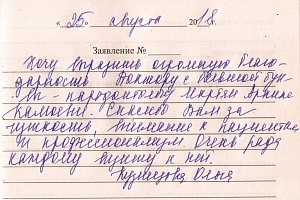 «25» августа 2018г.
Заявление №
Хочу выразить огромную благо-
дарность. Доктору с большой бук-
вы – пародонтологу Мкртян Армине
Камовны. Спасибо Вам за
чуткость, внимание к пациентам
и профессионализм. Очень рада
каждому визиту к ней.
Кузнецова Ольга